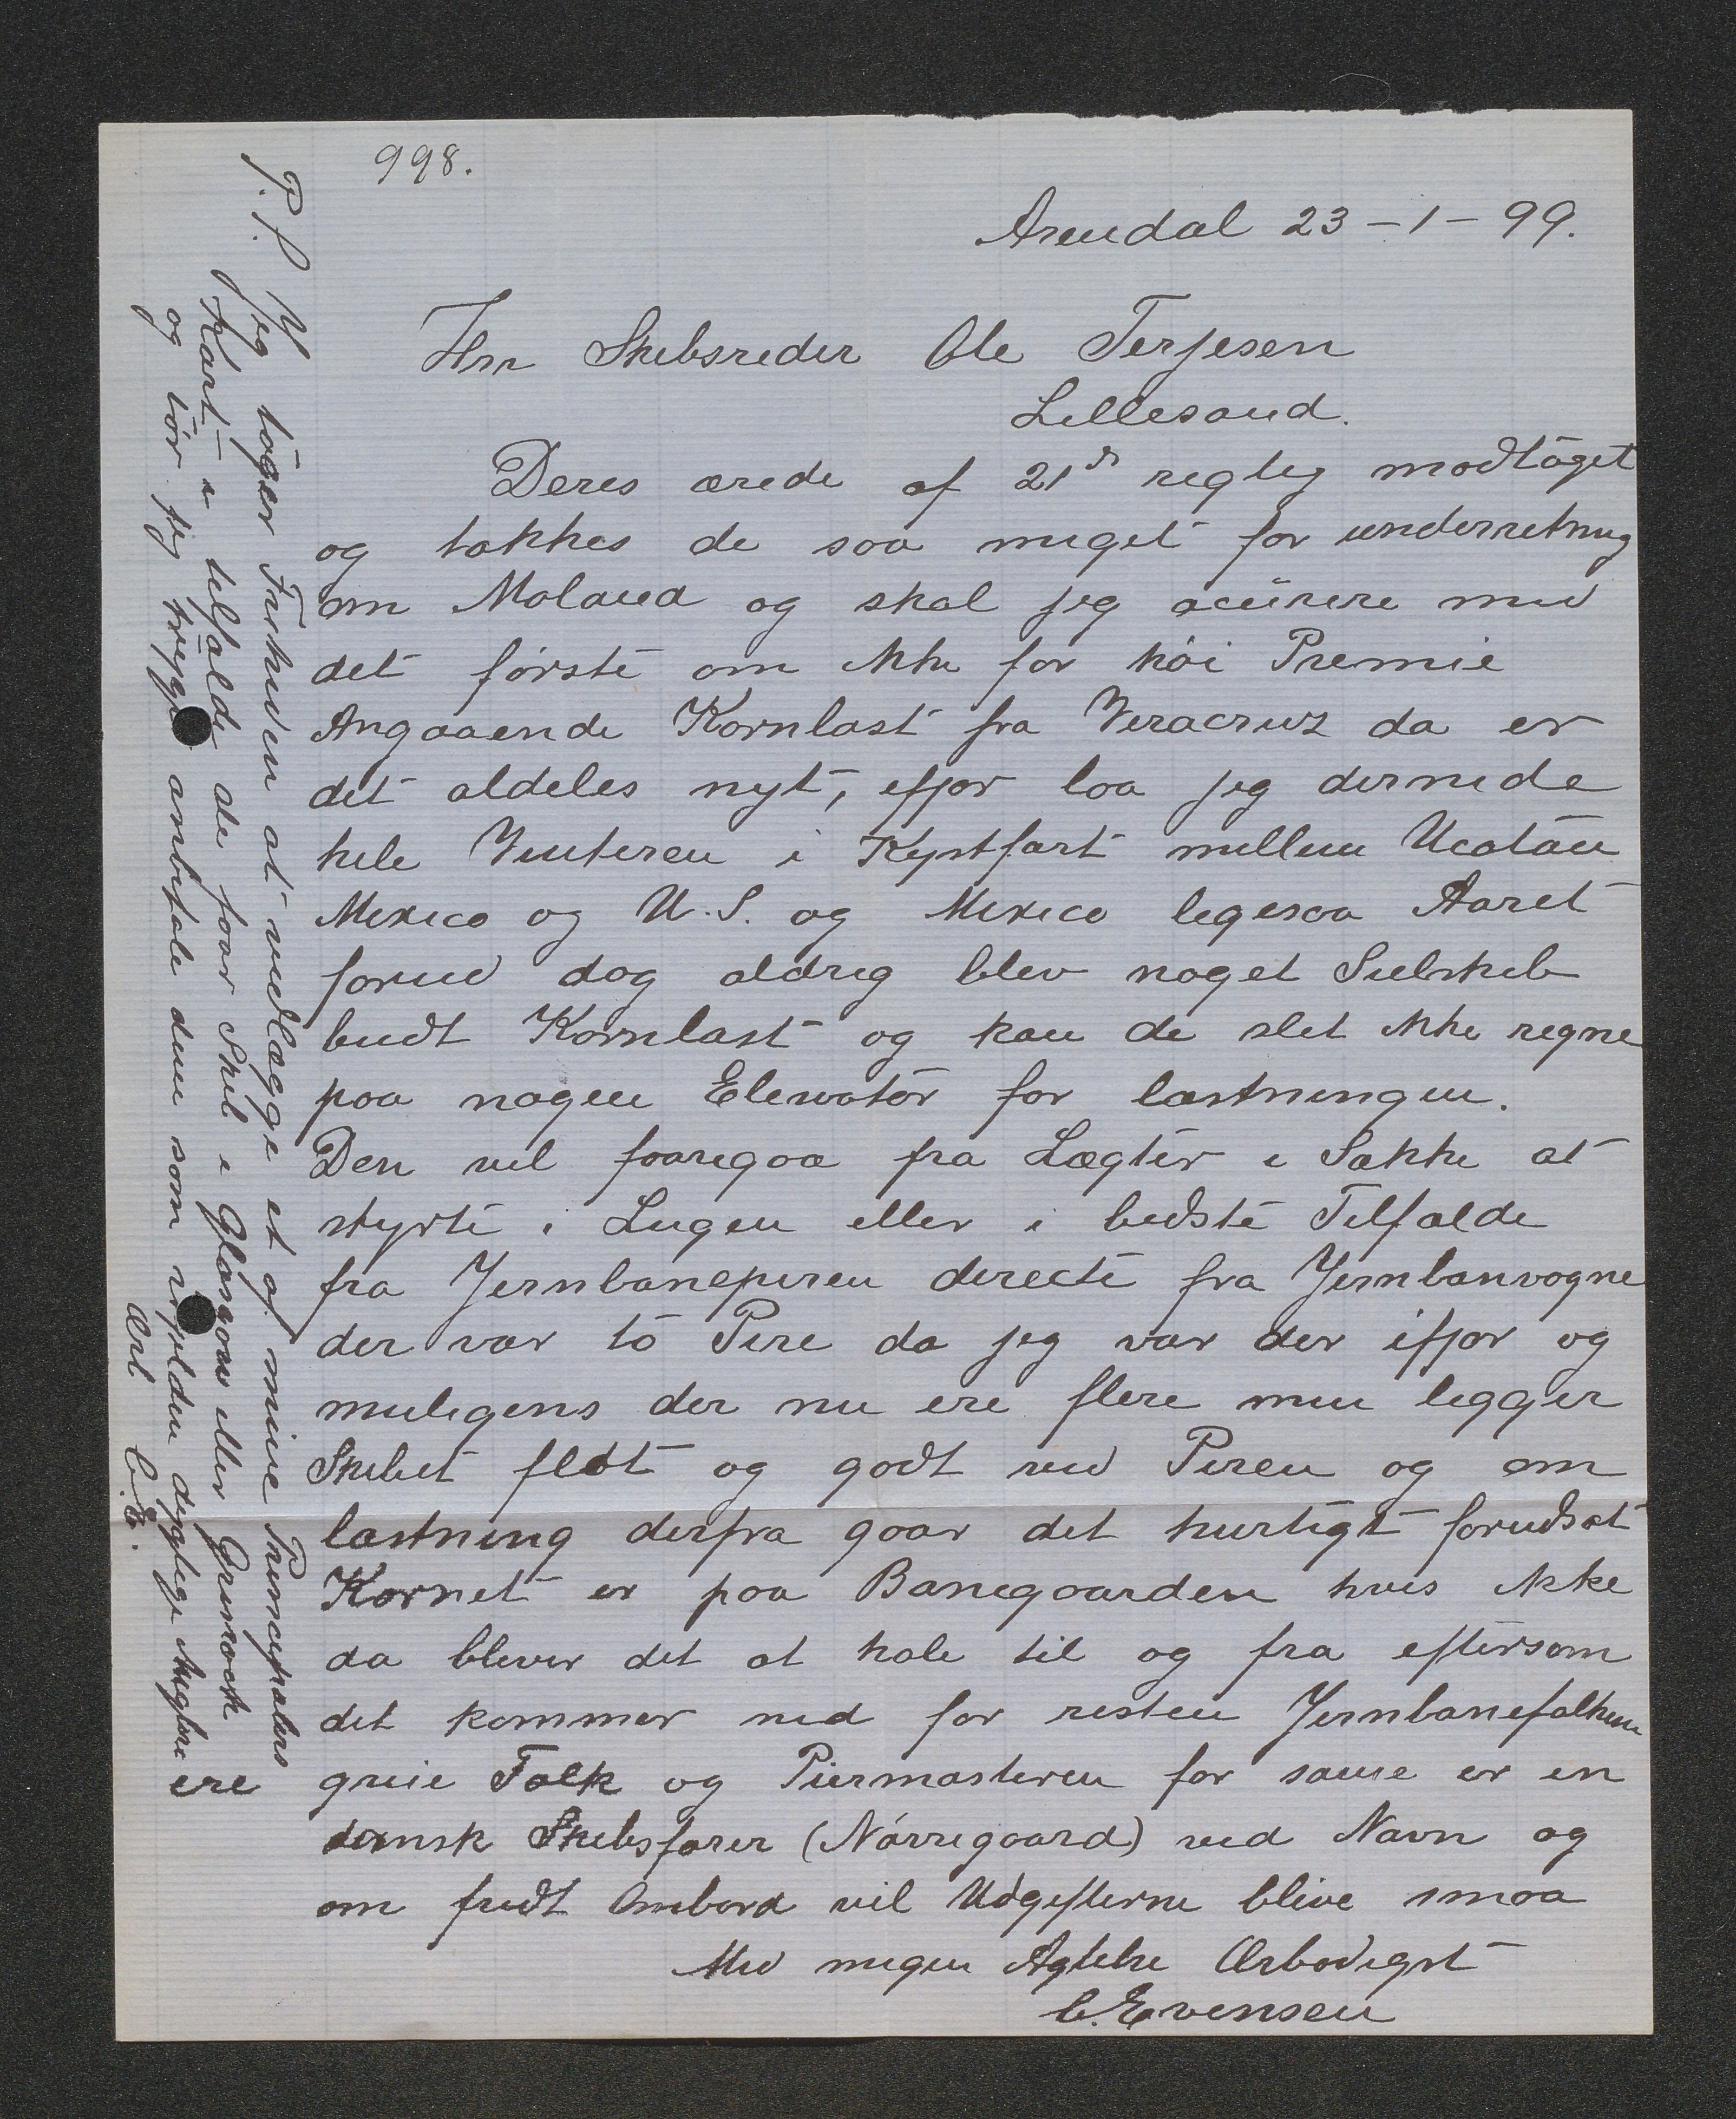 998.
Arendal 23-1-99.
Hrr Skibsreder Ole Terjesen
Lillesand.
Deres ærede af 21ds rigtig modtaget
og takkes de saa meget for underretning
om Moland og skal jeg acürere med
det første om ikke for høi Premie
Angaaende Kornlast fra Veracruz da er
det aldeles nyt, ifjor laa jeg dernede
hele Vinteren i Kystfart mellem Ucatan
Mexico og U.S. og Mexico ligesaa Aaret
forud dog aldrig blev noget Seilskib
budt Kornlast og kan de slet ikke regne
paa nogen Elevator for lastningen.
Den vil foaregaa fra Lægter i Sække at
styrte i Lugen eller i bedste Tilfælde
fra Jernbanepiren directe fra Jernbanvogne
der var to Pire da jeg var der ifjor og
muligens der nu ere flere men ligger
Skibet flot og godt ved Piren og om
lastning derfra gaar det hurtigt forudsat
Kornet er paa Banegaarden hvis ikke
da bliver det at hale til og fra eftersom
det kommer ned for resten Jernbanefolkene
greie Folk og Piermasteren for samme er en
dansk Skibsfører (Nørregaard) ved Navn og
om friedt Ombord vil Udgifterne blive smaa
Med megen Agtelse Ærbødigst
C. Evensen
P.S. Jeg tager Friheden at vedlægge et af mine Principalers
Kart i tilfælde de faar Skib i Glasgow eller Grenock
og tør jeg trygt anbefale dem som dygtige Mæglere
ere
Ærb C.E.